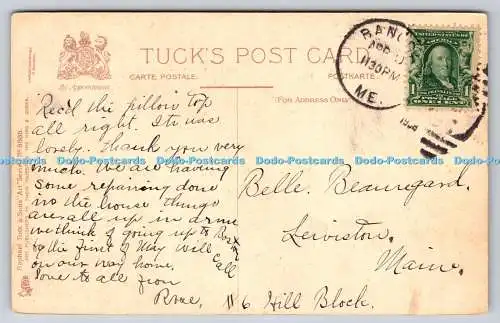 TUCK'S POST CARD
CARTE POSTALE.
POSTKARTE.
By Appointment
(For Address Only)
BANGOR
APR
1130 PM
ME.
1908
1 1
ONE CENT
Rec'd the pillow top
all right. It was
lovely. Thank you very
much. We are having
some repairing done
in the house things
are all up in
we think of going up to
by the first of May will
call
on our way home.
love to all from
Rose,
Belle. Beauregard.
Lewiston
Maine.
116 Hill Block.
Dodo-Postcards Dodo-Postcards Dodo-Postcards Dodo-Postcards Dodo-Postcards
Raphael Tuck & Sons' "Art" Series